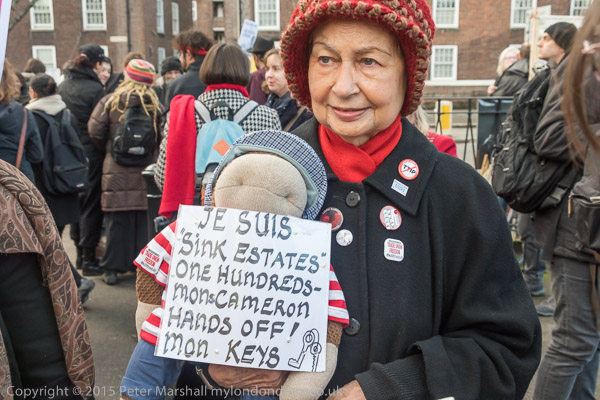 JE SUIS
"SINK ESTATES"
ONE HUNDREDS-
MONSCAMERON
HANDS OFF!
MON KEYS
Copyright © 2015 Peter Marshall mylondondiary.co.uk